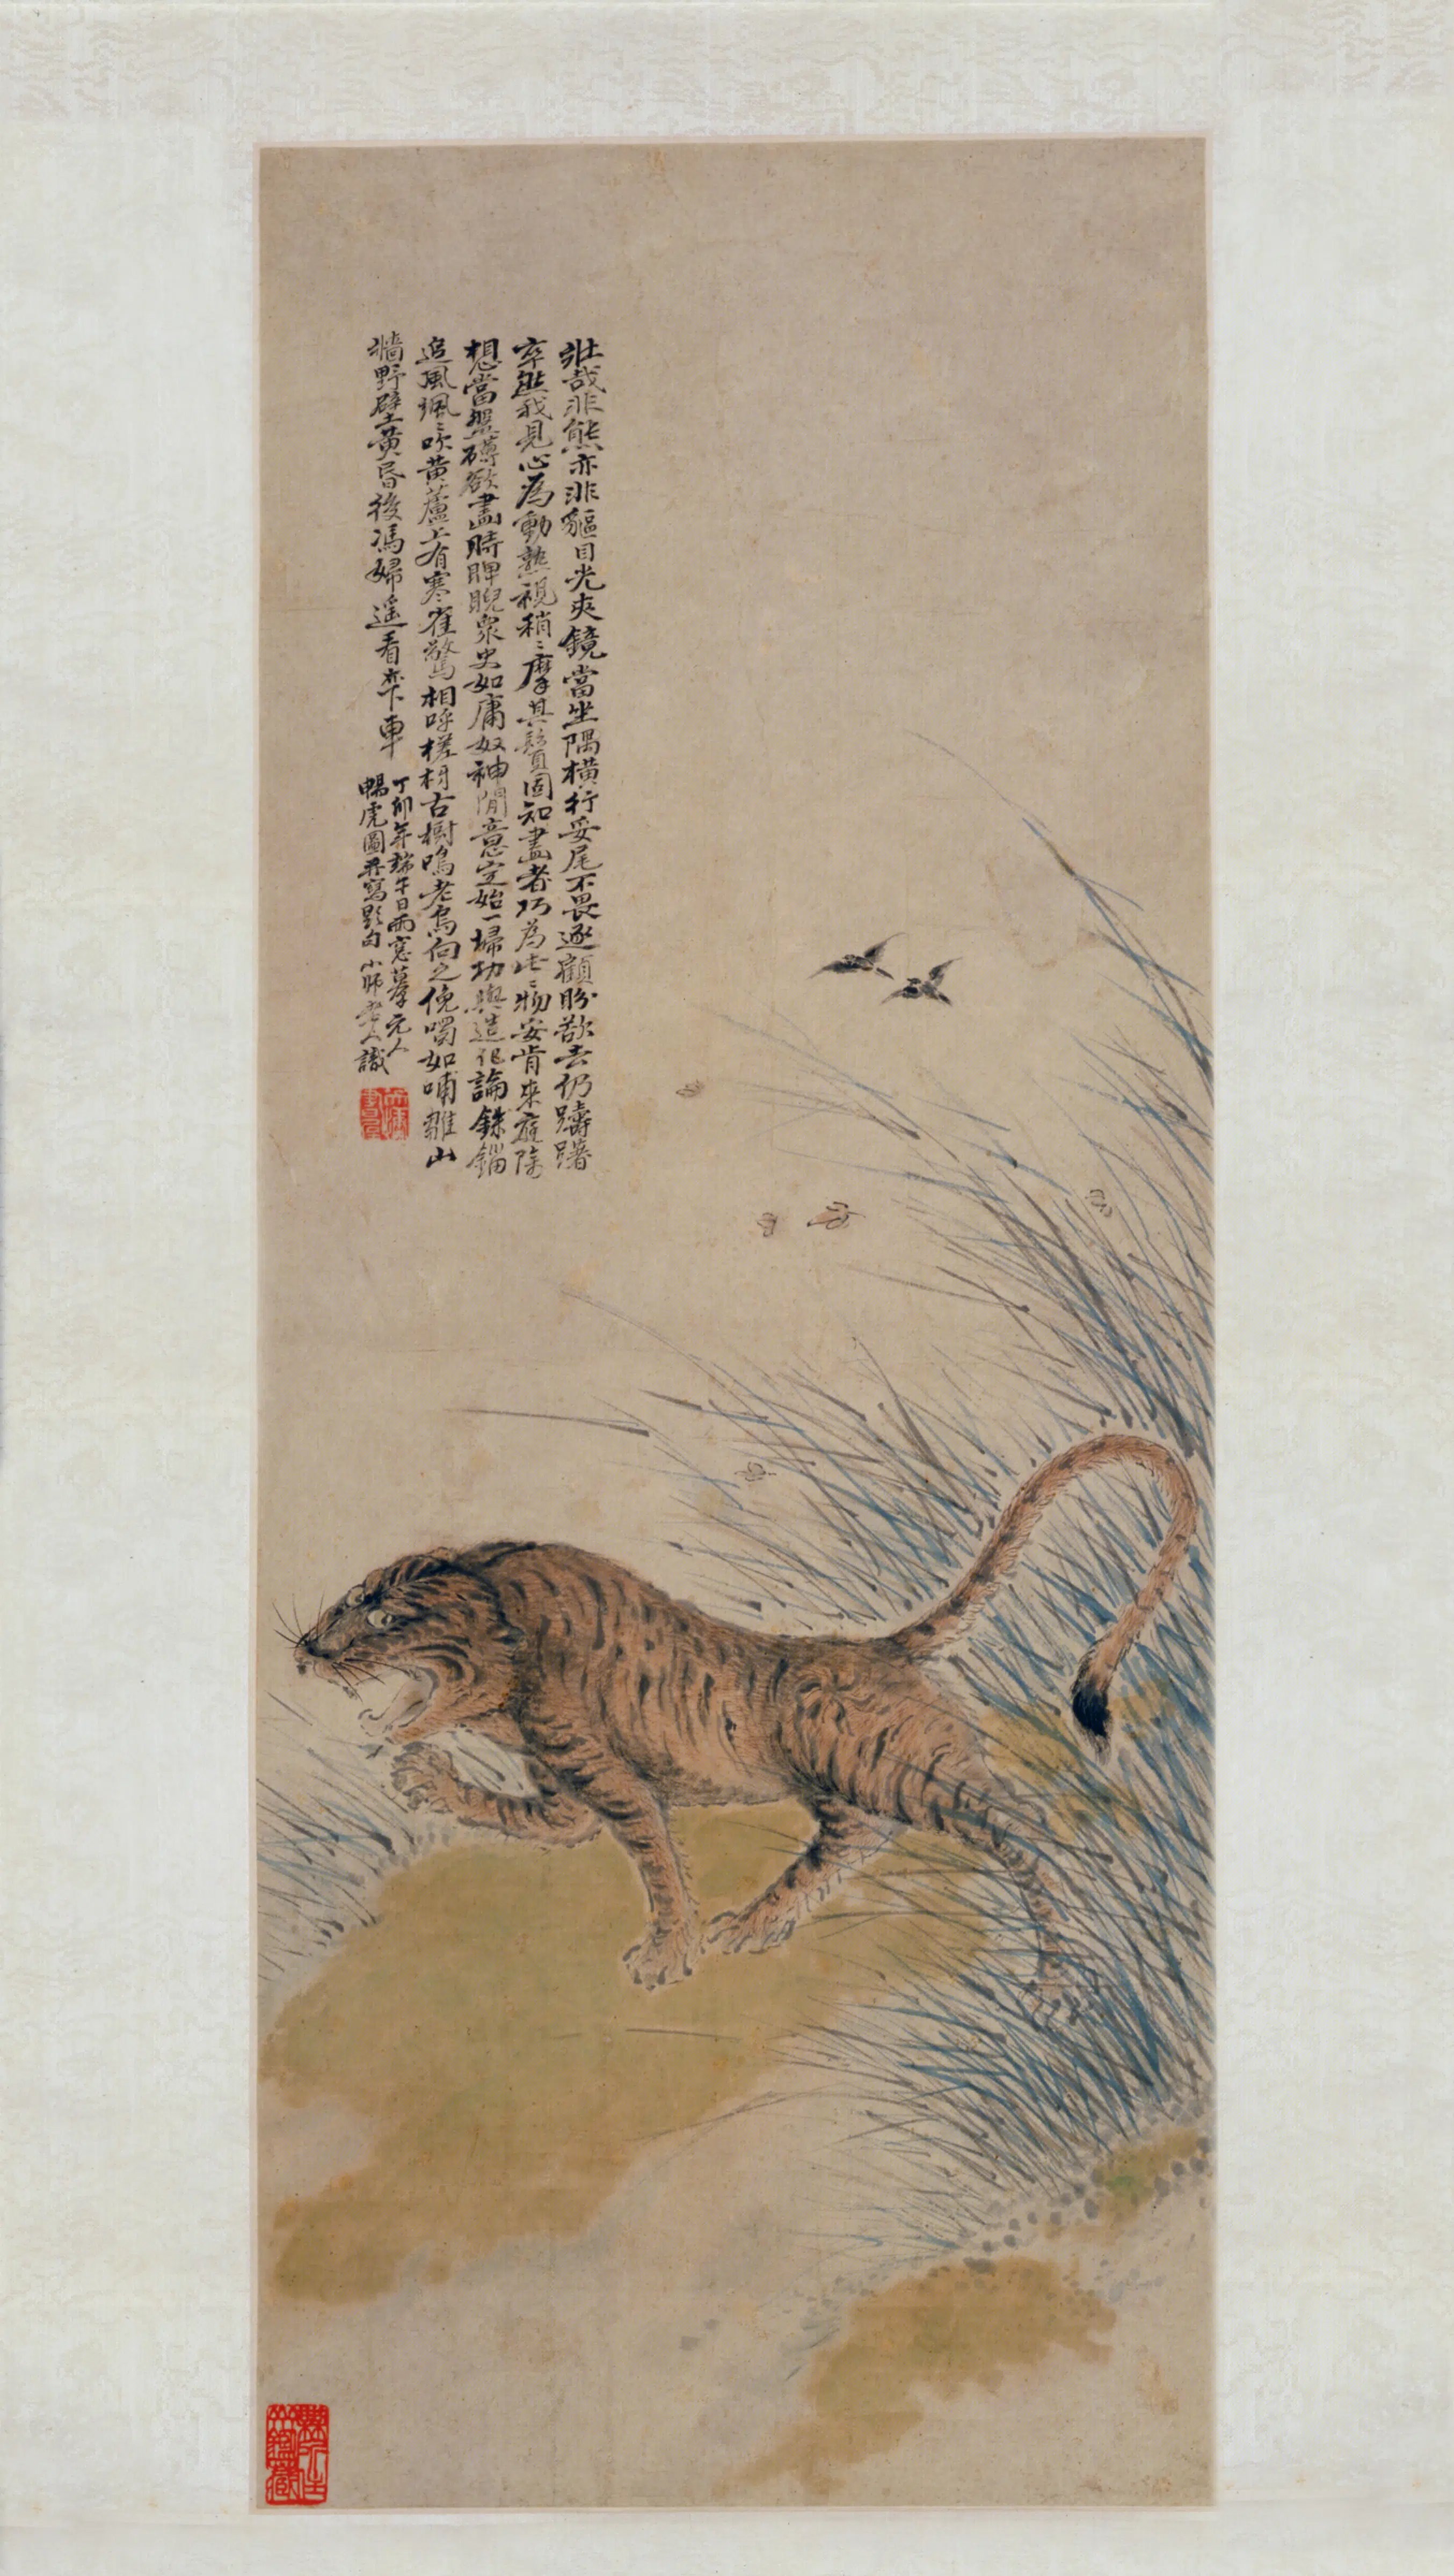 壯哉非熊亦非貙目光夾鏡當坐隅橫行妥尾不畏逐顧盼欲去仍躊躇
卒然我見心為動熟視稍〻摩其鬚固知畫者巧為此〻物安肯來庭除
想當盤礴欲畫時睥睨衆史如庸奴神閒意定始一掃功與造化論銖錙
追風颯〻吹黃蘆上有寒雀驚相呼槎枒古樹鳴老烏向之俛噣如哺雛山
墻野壁黃昏後馮婦遥看亦下車
丁卯年端午日雨窓摹元人
暢虎圖并寫題句小師老人識